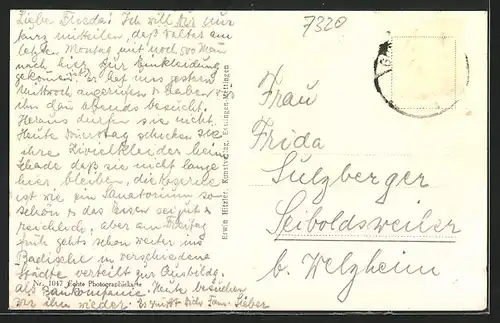 7320
Liebe Frieda! Ich will Dir nur
kurz mitteilen, daß Walter am
letzten Montag mit noch 500 Mann
nach hier zur Einkleidung
gekommen ist. Er hat uns gestern
Mittwoch angerufen & haben wir
ihn dann abends besucht.
Heraus dürfen sie nicht.
Heute Donnerstag schicken sie
ihre Zivilkleider heim
Schade daß sie nicht lange
hier bleiben, die Kaserne
ist wie ein Sanatorium so
schön & das Essen sei gut &
reichlich, aber am Freitag
früh gehts schon weiter ins
Badische in verschiedene
Städte verteilt zur Ausbildg.
als Baukompanie. Heute besuchen
wir ihn wieder. Es grüßt Dich Fam.
Nr. 1047 Echte Photographiekarte
Erwin Hitzler, Kunstverlag, Esslingen-Mettingen
Frau
Frida
Sulzberger
Seiboldsweiler
b. Welzheim